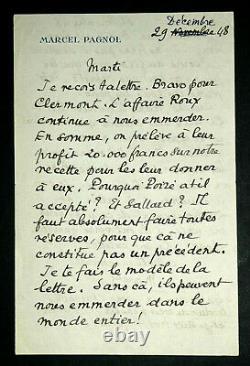 Décembre
29 Novembre 48
MARCEL PAGNOL
Marti
Je reçois ta lettre. Bravo pour
Clermont. L'affaire Roux
continue à nous emmerder.
En somme, on prélève à leur
profit 20.000 francs sur notre
recette pour les leur donner
à eux. Pourquoi Poiré a til
accepté? Et Sallard? Il
faut absolument faire toutes
réserves, pour que cà ne
constitue pas un précédent.
Je te fais le modèle de la
lettre. Sans cà, ils peuvent
nous emmerder dans le
monde entier!